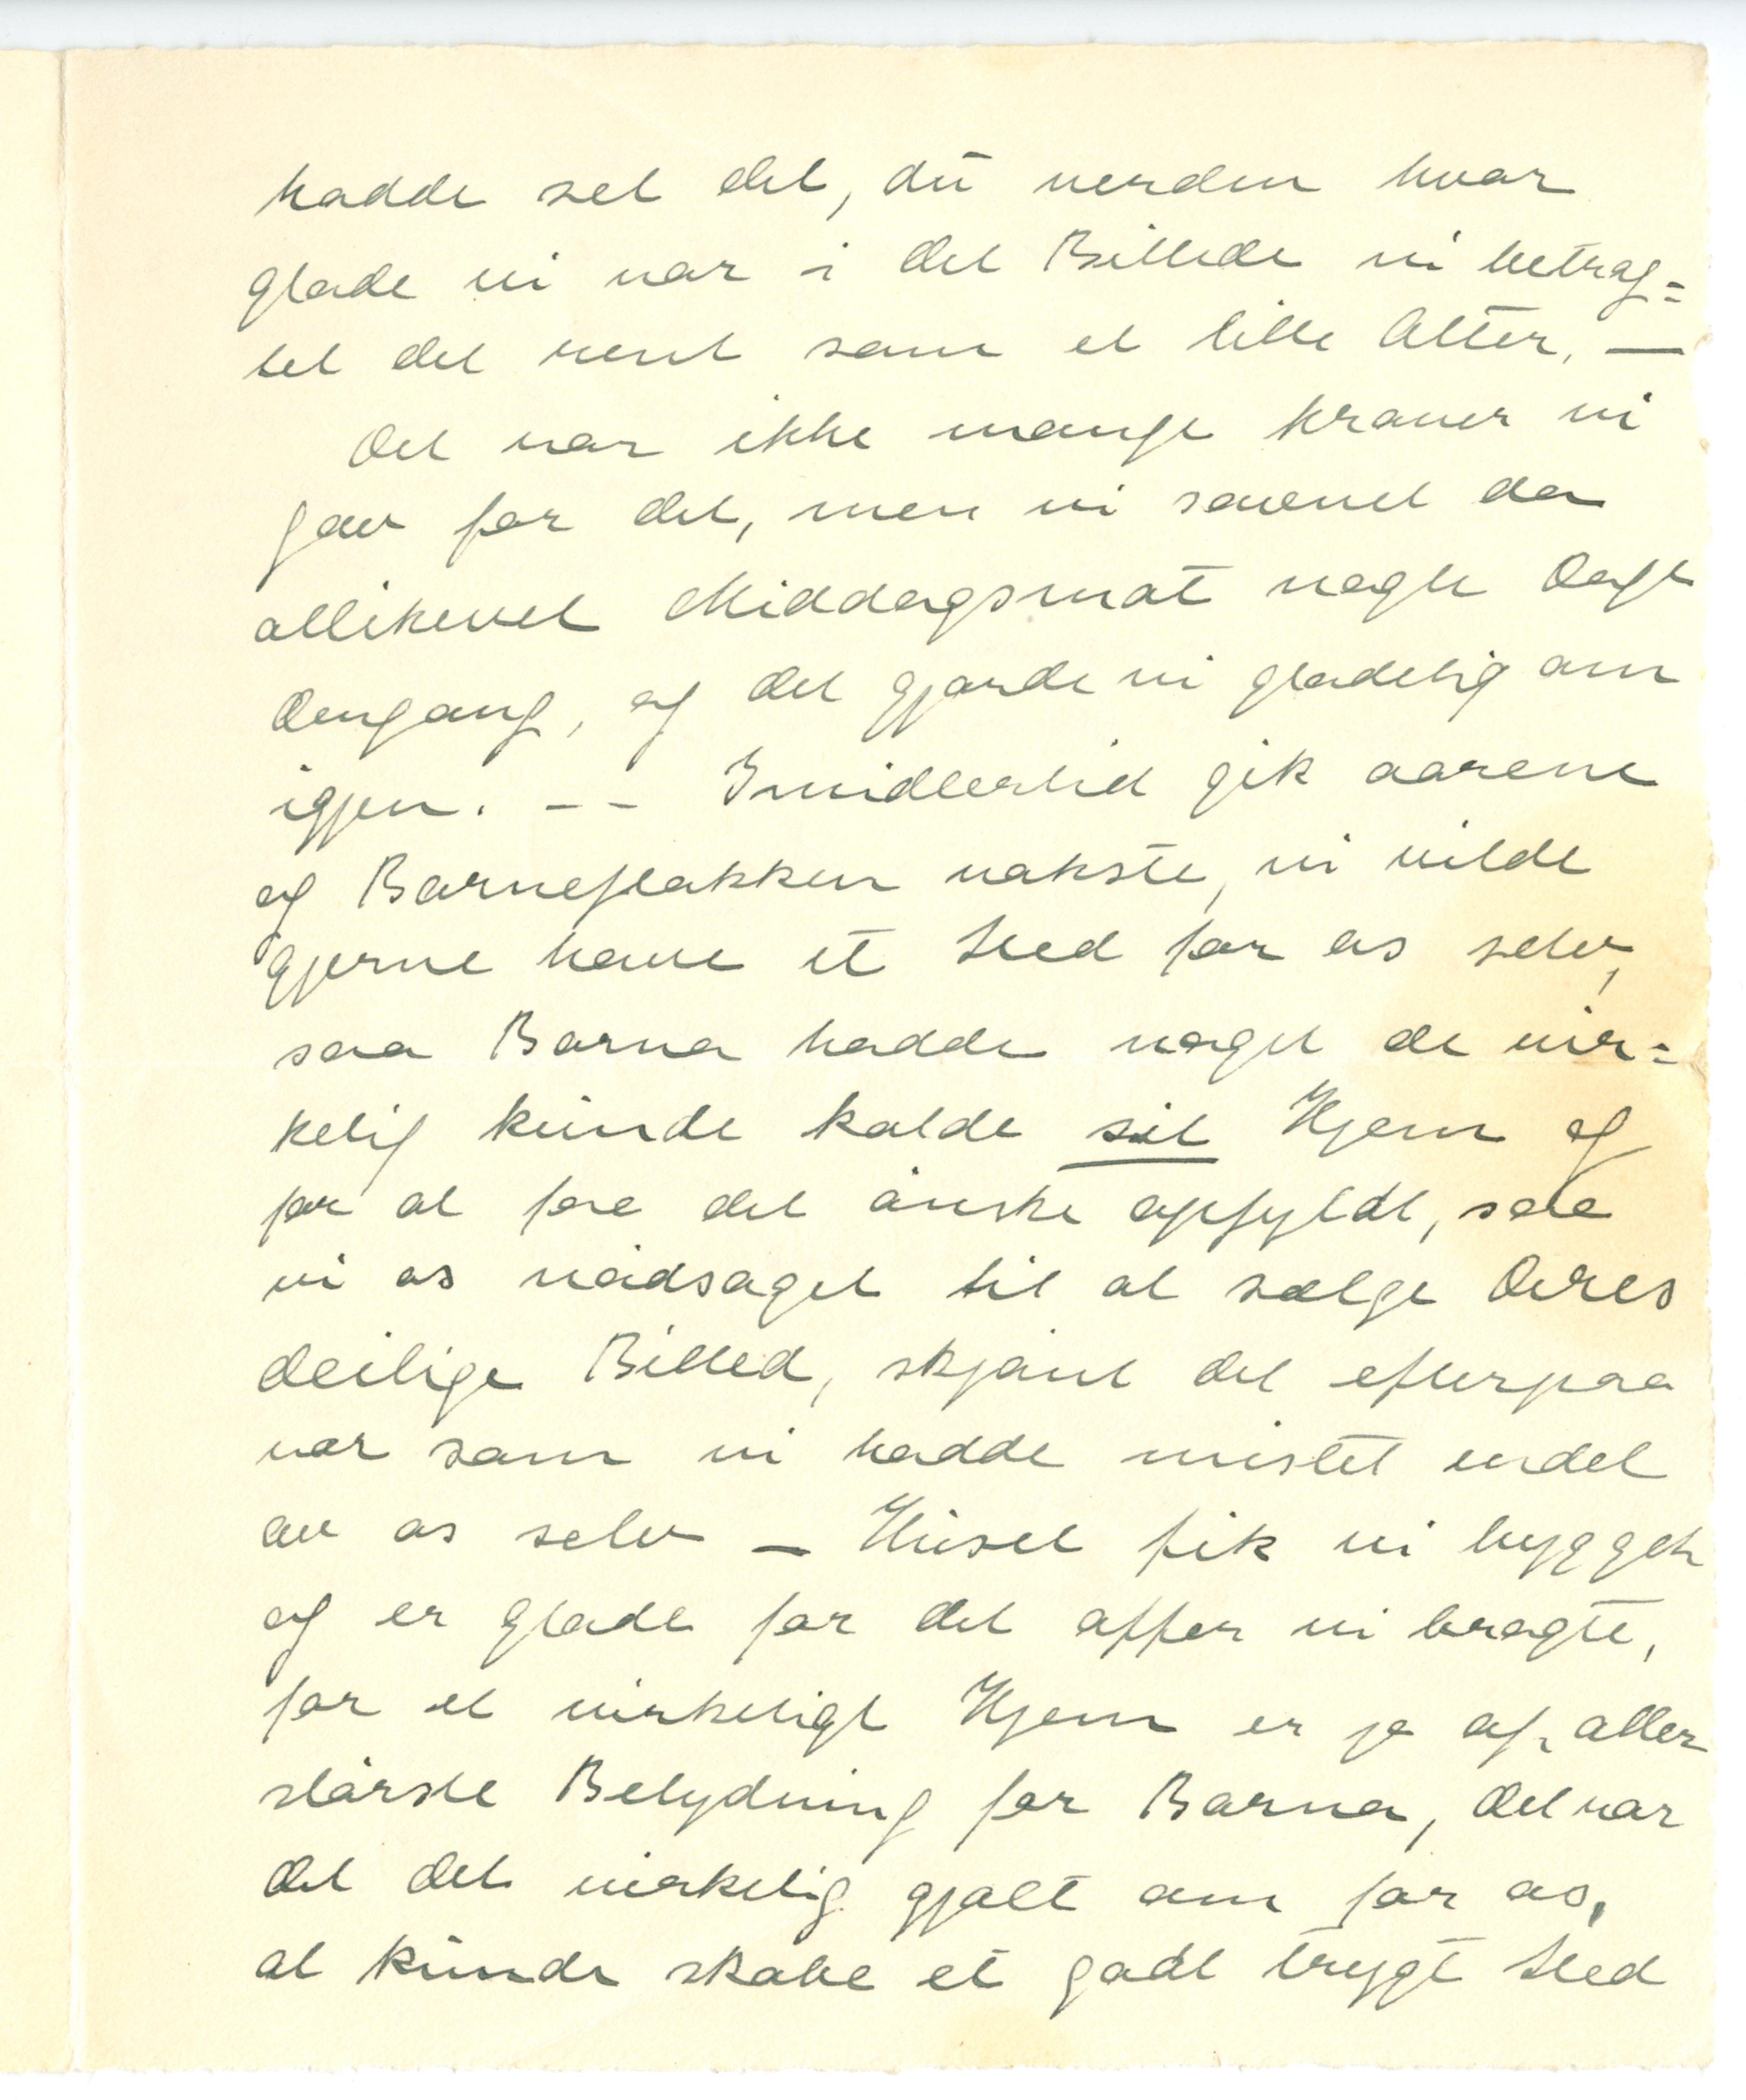 hadde set det, du verden hvor
glade vi var i det Billede vi betrag=
tet det rent som et lille Alter. —
Det var ikke mange kroner vi
gav for det, men vi savnet da
allikevel Middagsmat nogle Dage
dengang, og det gjorde vi gladelig om
igjen. – – Imidlertid gik aarene
og Barneflokken vokste, vi vilde
gjerne have et sted for os selv,
saa Barna hadde noget de vir=
kelig kunde kalde sit Hjem og
for at faa det ønske opfyldt, saa
vi os nødsaget til at sælge Deres
deilige Billed, skjønt det efterpaa
var som vi hadde mistet endel
av os selv – Huset fik vi bygget
og er glade for det offer vi bragte,
for et virkeligt Hjem er jo af aller
største Betydning for Barna, det var
det det virkelig gjalt om for os,
at kunde skabe et godt trygt sted